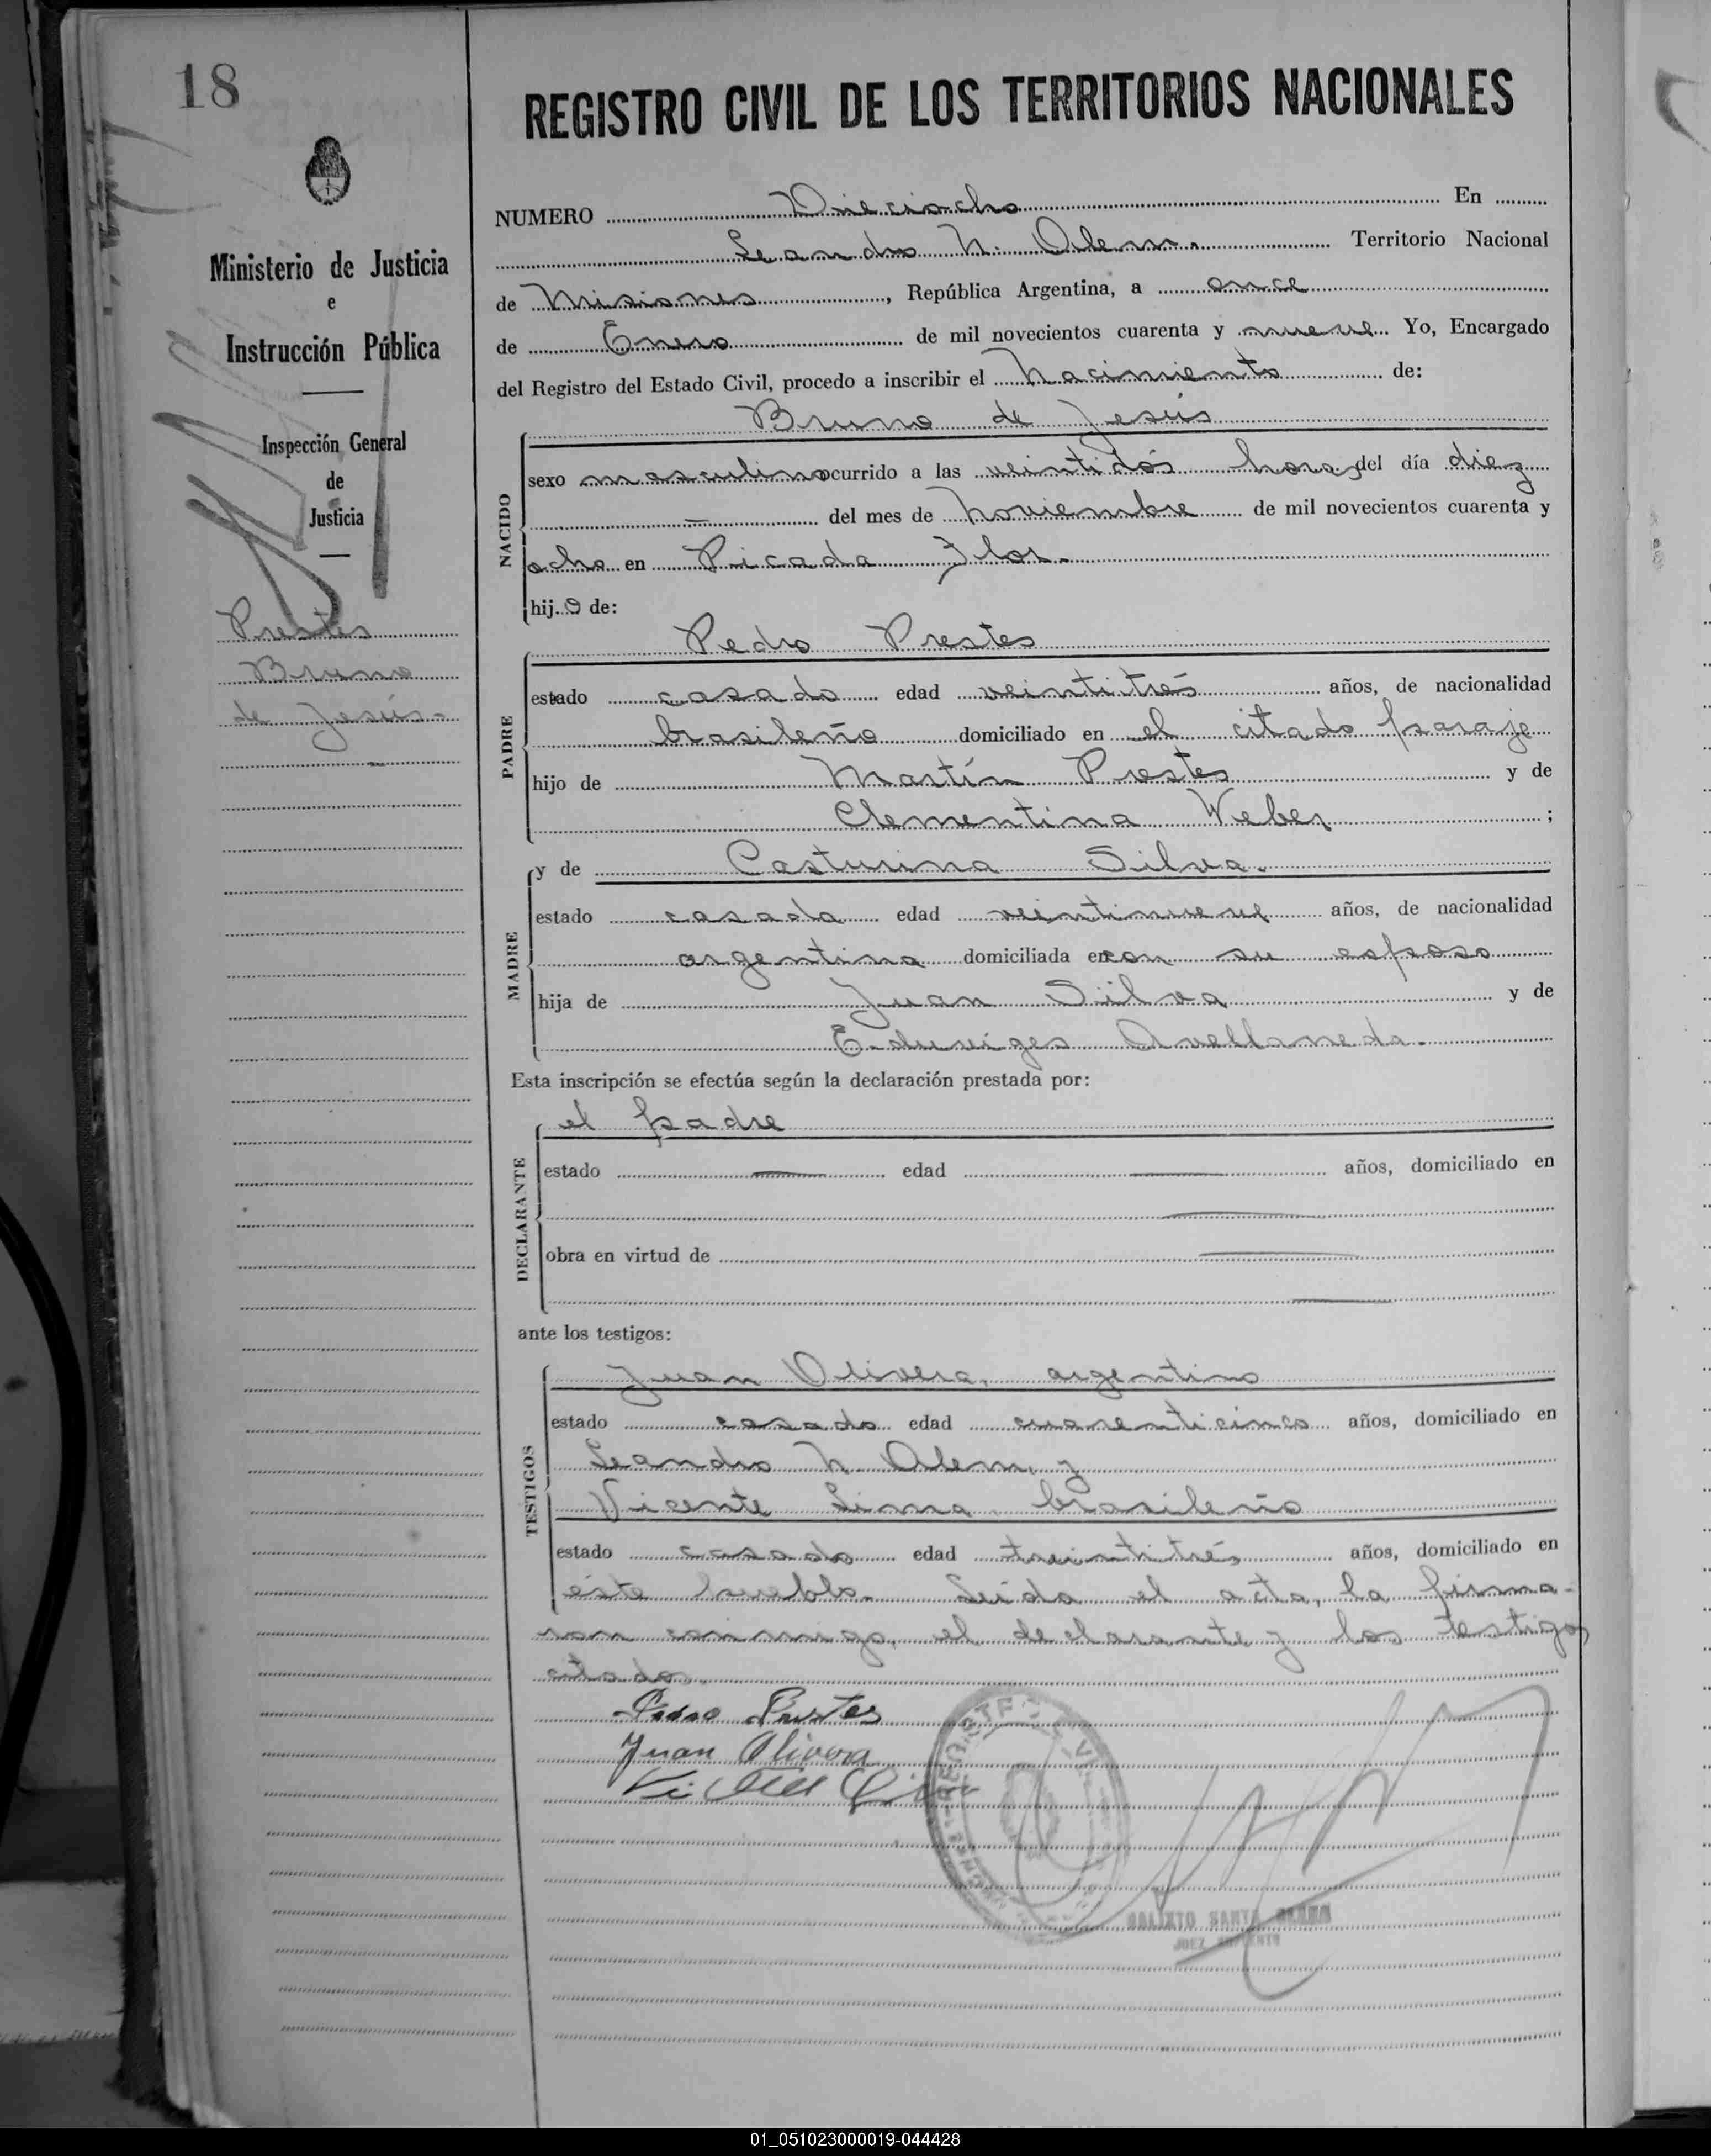 18
Ministerio de Justicia
e
Instrucción Pública
Inspección General
de
Justicia
Prestes
Bruno
de Jesús.-
REGISTRO CIVIL DE LOS TERRITORIOS NACIONALES
NUMERO Dieciocho En
Leandro N. Alem. Territorio Nacional
de Misiones, República Argentina, a once
de Enero de mil novecientos cuarenta y nueve Yo, Encargado
del Registro del Estado Civil, procedo a inscribir el Nacimiento de:
Bruno de Jesús
NACIDO
sexo masculino ocurrido a las veintidós horas del día diez
- del mes de Noviembre de mil novecientos cuarenta y
ocho en Picada Flor.-
hijo de:
Pedro Prestes
PADRE
estado casado edad veintitrés años, de nacionalidad
brasileño domiciliado en el citado paraje
hijo de Martín Prestes y de
Clementina Weber ;
y de Casturina Silva.
MADRE
estado casada edad veintinueve años, de nacionalidad
argentina domiciliada en con su esposo
hija de Juan Silva y de
Eduviges Avellaneda.
Esta inscripción se efectúa según la declaración prestada por:
el padre
DECLARANTE
estado — edad — años, domiciliado en
—
obra en virtud de —
—
ante los testigos:
TESTIGOS
Juan Olivera, argentino
estado casado edad cuarenticinco años, domiciliado en
Leandro N. Alem, y
Vicente Lima, brasileño
estado casado edad treintitrés años, domiciliado en
éste pueblo.- Leida el acta, la firma-
ron conmigo, el declarante y los testigos
citados.
Pedro Prestes
Juan Olivera
CALIXTO SANTA
JUEZ SUPLENTE
01_051023000019-044428